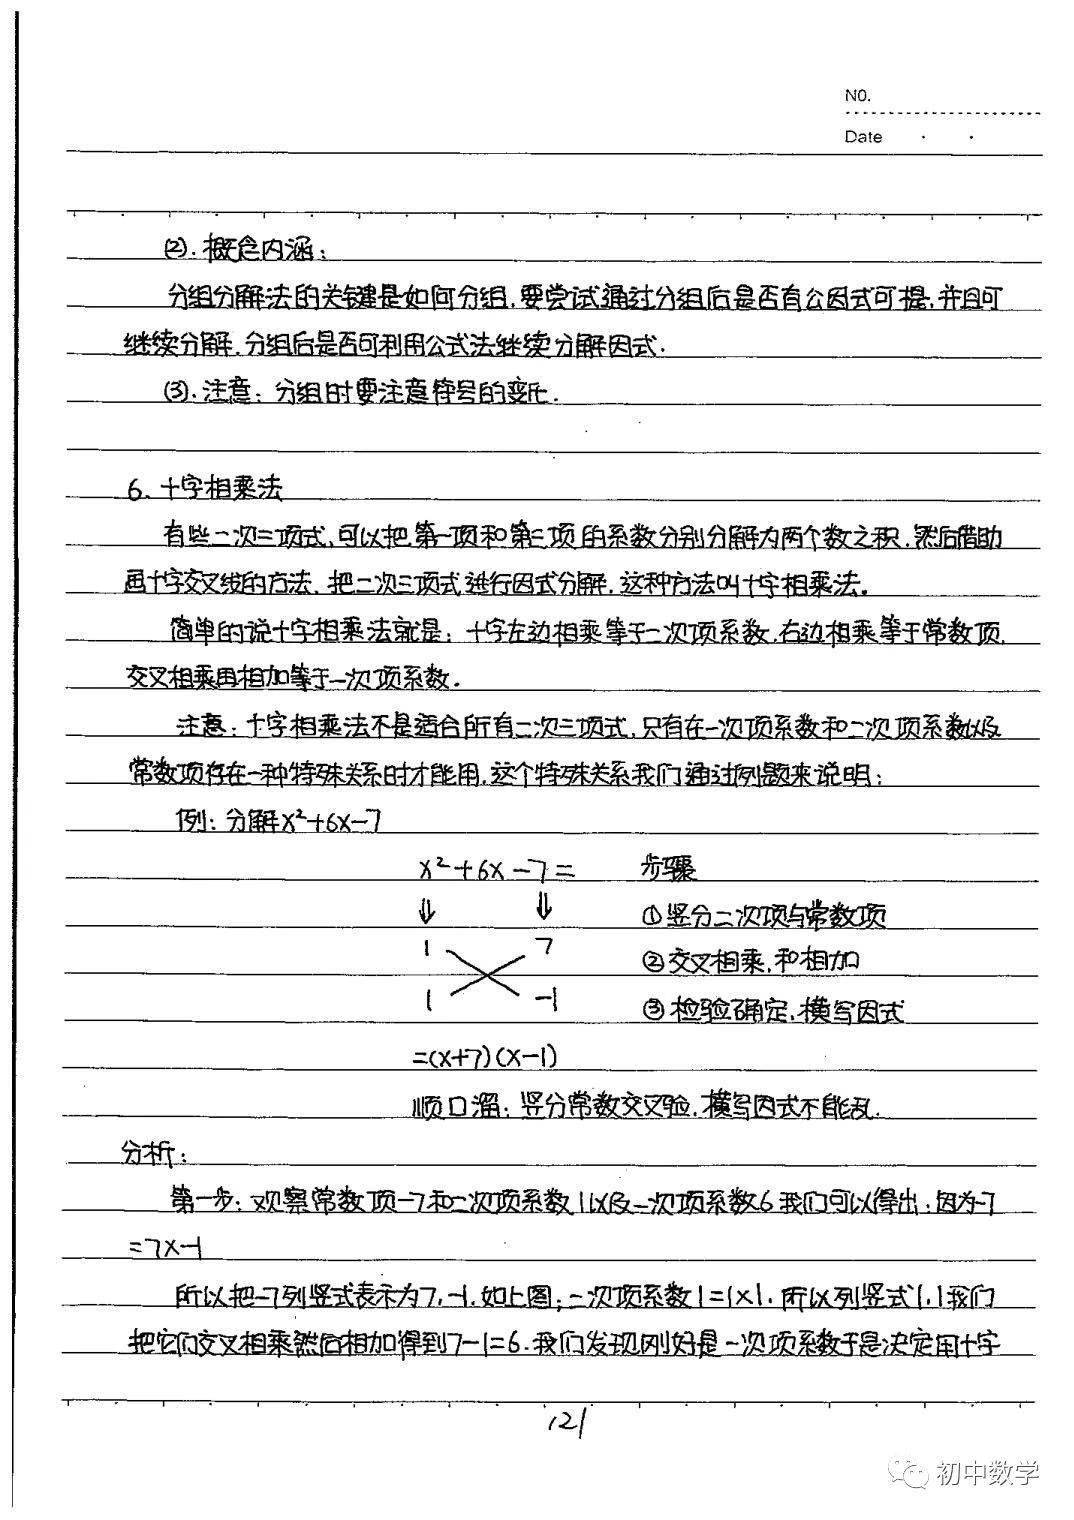 NO.
Date
(2).概念内涵:
分组分解法的关键是如何分组,要尝试通过分组后是否有公因式可提,并且可
继续分解,分组后是否可利用公式法继续分解因式.
(3).注意:分组时要注意符号的变化.
6、十字相乘法
有些二次三项式,可以把第一项和第三项的系数分别分解为两个数之积,然后借助
画十字交叉线的方法,把二次三项式进行因式分解,这种方法叫十字相乘法。
简单的说十字相乘法就是:十字左边相乘等于二次项系数,右边相乘等于常数项,
交叉相乘再相加等于一次项系数.
注意:十字相乘法不是适合所有二次三项式,只有在一次项系数和二次项系数以及
常数项存在一种特殊关系时才能用,这个特殊关系我们通过列题来说明:
例:分解x²+6x-7
x²+6x-7= 步骤
⇓ ⇓ ①竖分二次项与常数项
1 7 ②交叉相乘,和相加
1 -1 ③检验确定,横写因式
=(x+7)(x-1)
顺口溜:竖分常数交叉验,横写因式不能乱.
分析:
第一步:观察常数项-7和二次项系数1以及一次项系数6我们可以得出:因为-7
=7x-1
所以把-7列竖式表示为7,-1,如上图;二次项系数1=1x1,所以列竖式1,1我们
把它们交叉相乘然后相加得到7-1=6,我们发现刚好是一次项系数于是决定用十字
121
初中数学